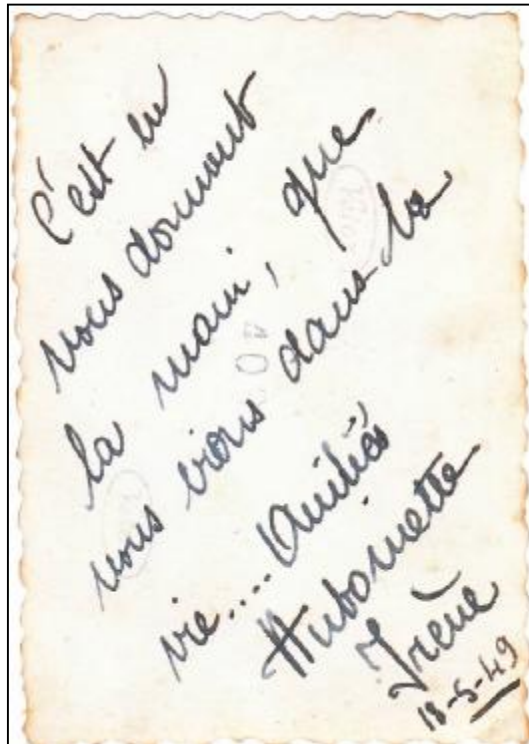 C'est en
nous donnant
la main, que
nous irons dans la
vie.... Amitiés
Irène
18-5-49